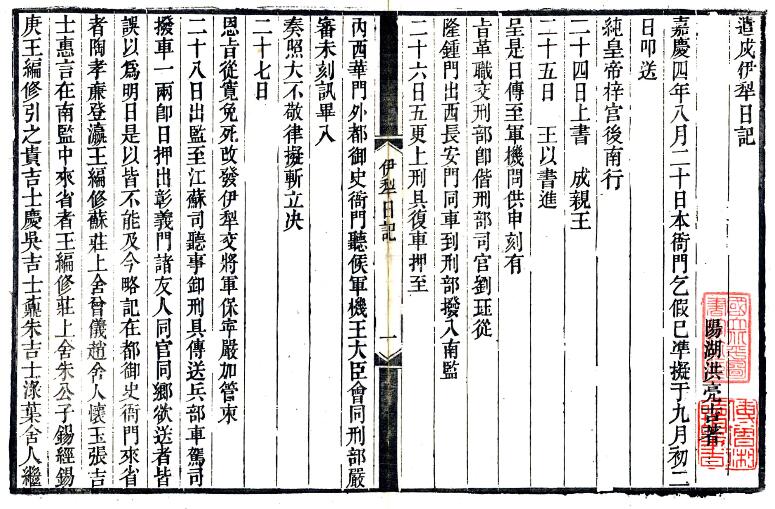 遣戍伊犁日記
陽湖洪亮吉著
嘉慶四年八月二十日本衙門乞假已準擬于九月初二
日叩送
純皇帝梓宮後南行
二十四日上書　成親王
二十五日　王以書進
呈是日傳至軍機問供申刻有
旨革職交刑部卽偕刑部司官劉珏從
隆鍾門出西長安門同車到刑部撥入南監
二十六日五更上刑具復車押至
伊犁日記
一
內西華門外都御史衙門聽候軍機王大臣會同刑部嚴
審未刻訊畢入
奏照大不敬律擬斬立决
二十七日
恩旨從寬免死改發伊犁交將軍保寧嚴加管束
二十八日出監至江蘇司聽事卸刑具傳送兵部車駕司
撥車一兩卽日押出彰義門諸友人同官同鄉欲送者皆
誤以爲明日是以皆不能及今略記在都御史衙門來省
者陶孝廉登瀛王編修蘇莊上舍曾儀趙舍人懷玉張吉
士惠言在南監中來省者王編修莊上舍朱公子錫經錫
庚王編修引之貴吉士慶吳吉士鼒朱吉士滌葉舍人繼